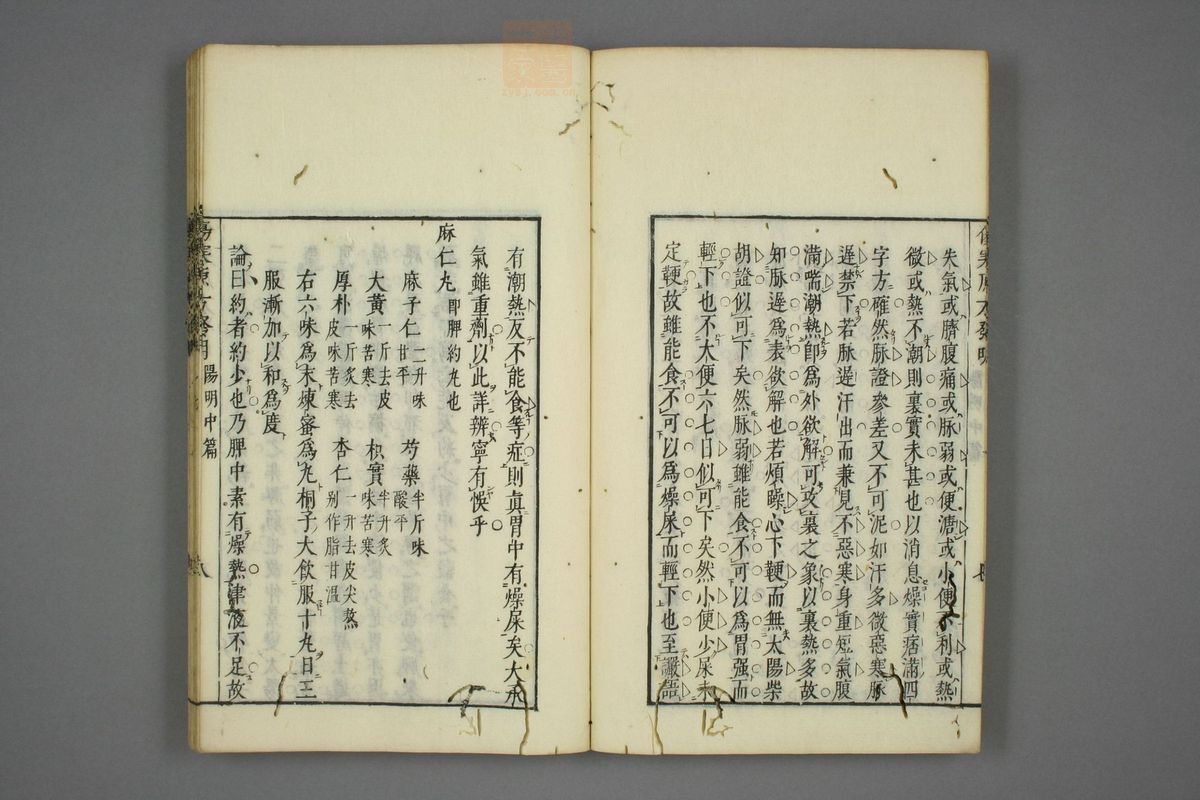 失氣或臍腹痛或脉弱或便溏或小便不利或熱
微或熱不潮則裏實未甚也以消息燥實痞滿四
字方確然脉證參差又不可泥如汗多微惡寒脉
遲禁下若脉遲汗出而兼見不惡寒身重短氣腹
滿喘潮熱卽爲外欲解可攻裏之象以裏熱多故
知脉遲爲表欲解也若煩躁心下鞕而無太陽柴
胡證似可下矣然脉弱雖能食不可以爲胃强而
輕下也不大便六七日似可下矣然小便少屎未
定鞕故雖能食不可以爲燥屎而輕下也至讝語
有潮熱反不能食等症則真胃中有燥屎矣大承
氣雖重劑以此詳辨寧有悞乎
麻仁丸 卽脾約丸也
麻子仁 二升味甘平 芍藥 半斤味酸平
大黃 一斤去皮味苦寒 枳實 半升炙味苦寒
厚朴 一斤炙去皮味苦寒 杏仁 一升去皮尖熬别作脂甘温
右六味爲末煉蜜爲丸桐子大飲服十丸日三
服漸加以和爲度
論曰約者約少也乃脾中素有燥熱津液不足故
陽明中篇